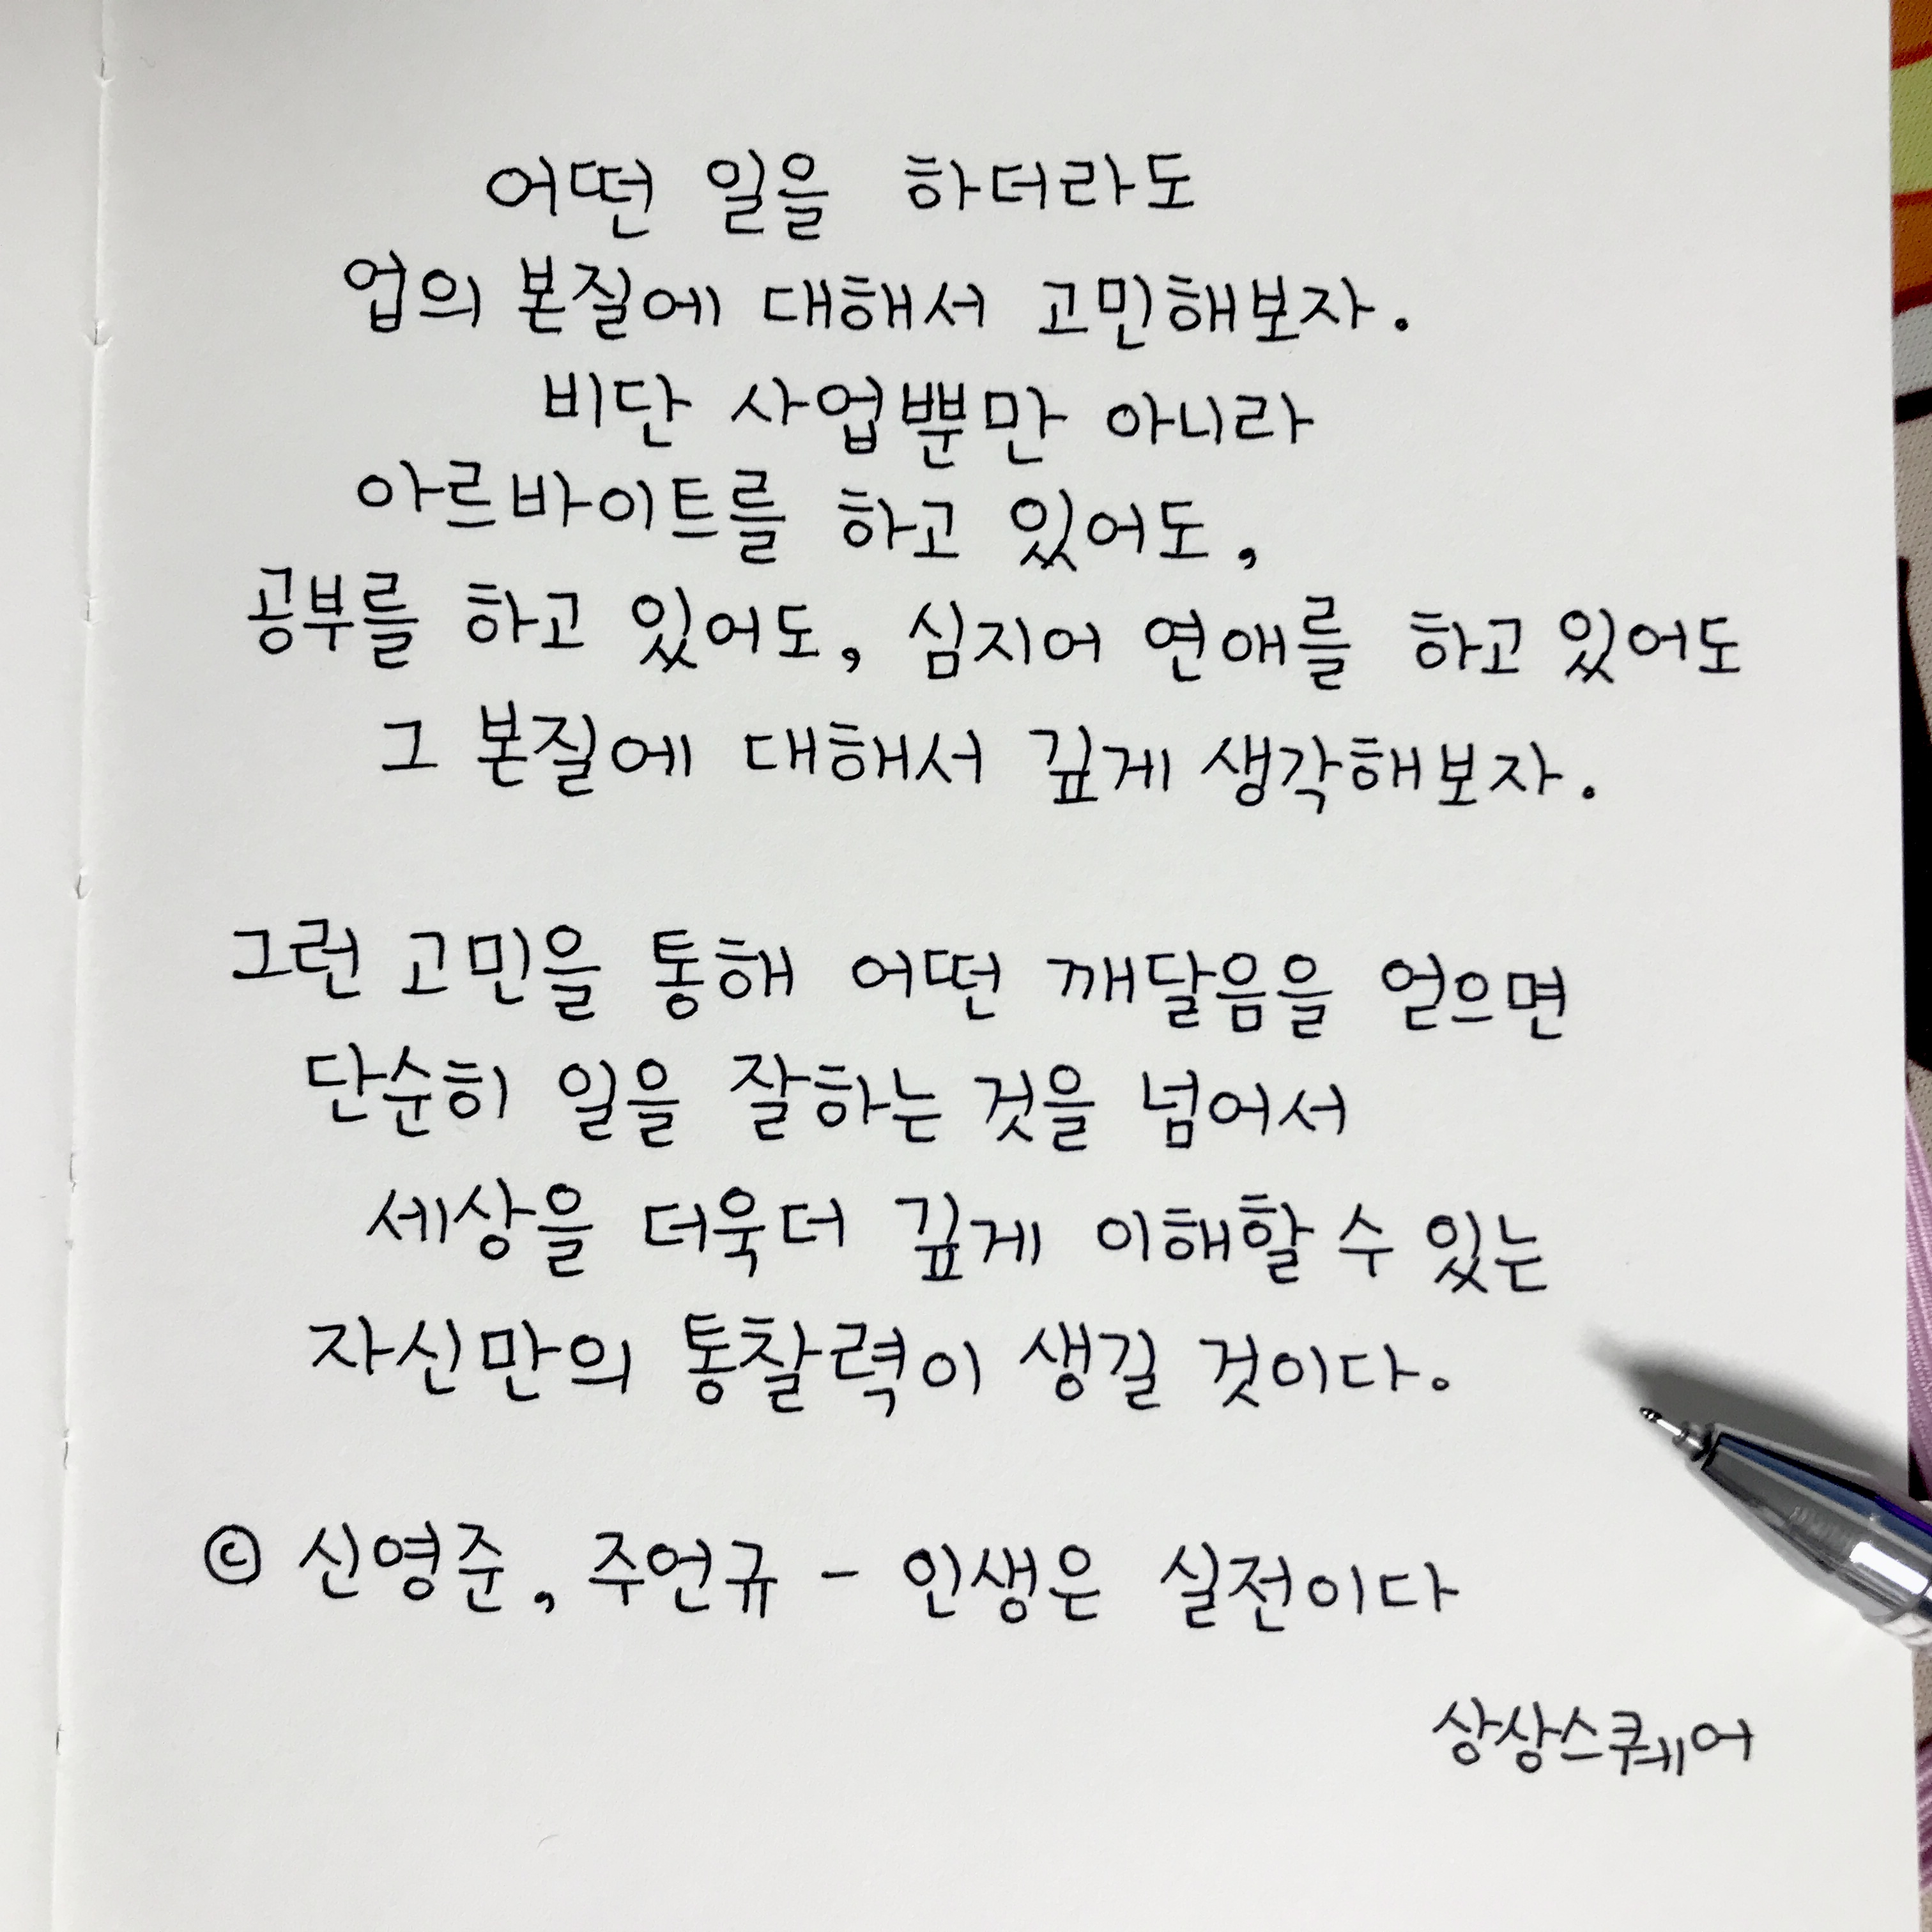 어떤 일을 하더라도
업의 본질에 대해서 고민해보자.
비단 사업뿐만 아니라
아르바이트를 하고 있어도,
공부를 하고 있어도, 심지어 연애를 하고 있어도
그 본질에 대해서 깊게 생각해보자.
그런 고민을 통해 어떤 깨달음을 얻으면
단순히 일을 잘하는 것을 넘어서
세상을 더욱더 깊게 이해할 수 있는
자신만의 통찰력이 생길 것이다.
© 신영준, 주언규 - 인생은 실전이다
상상스퀘어